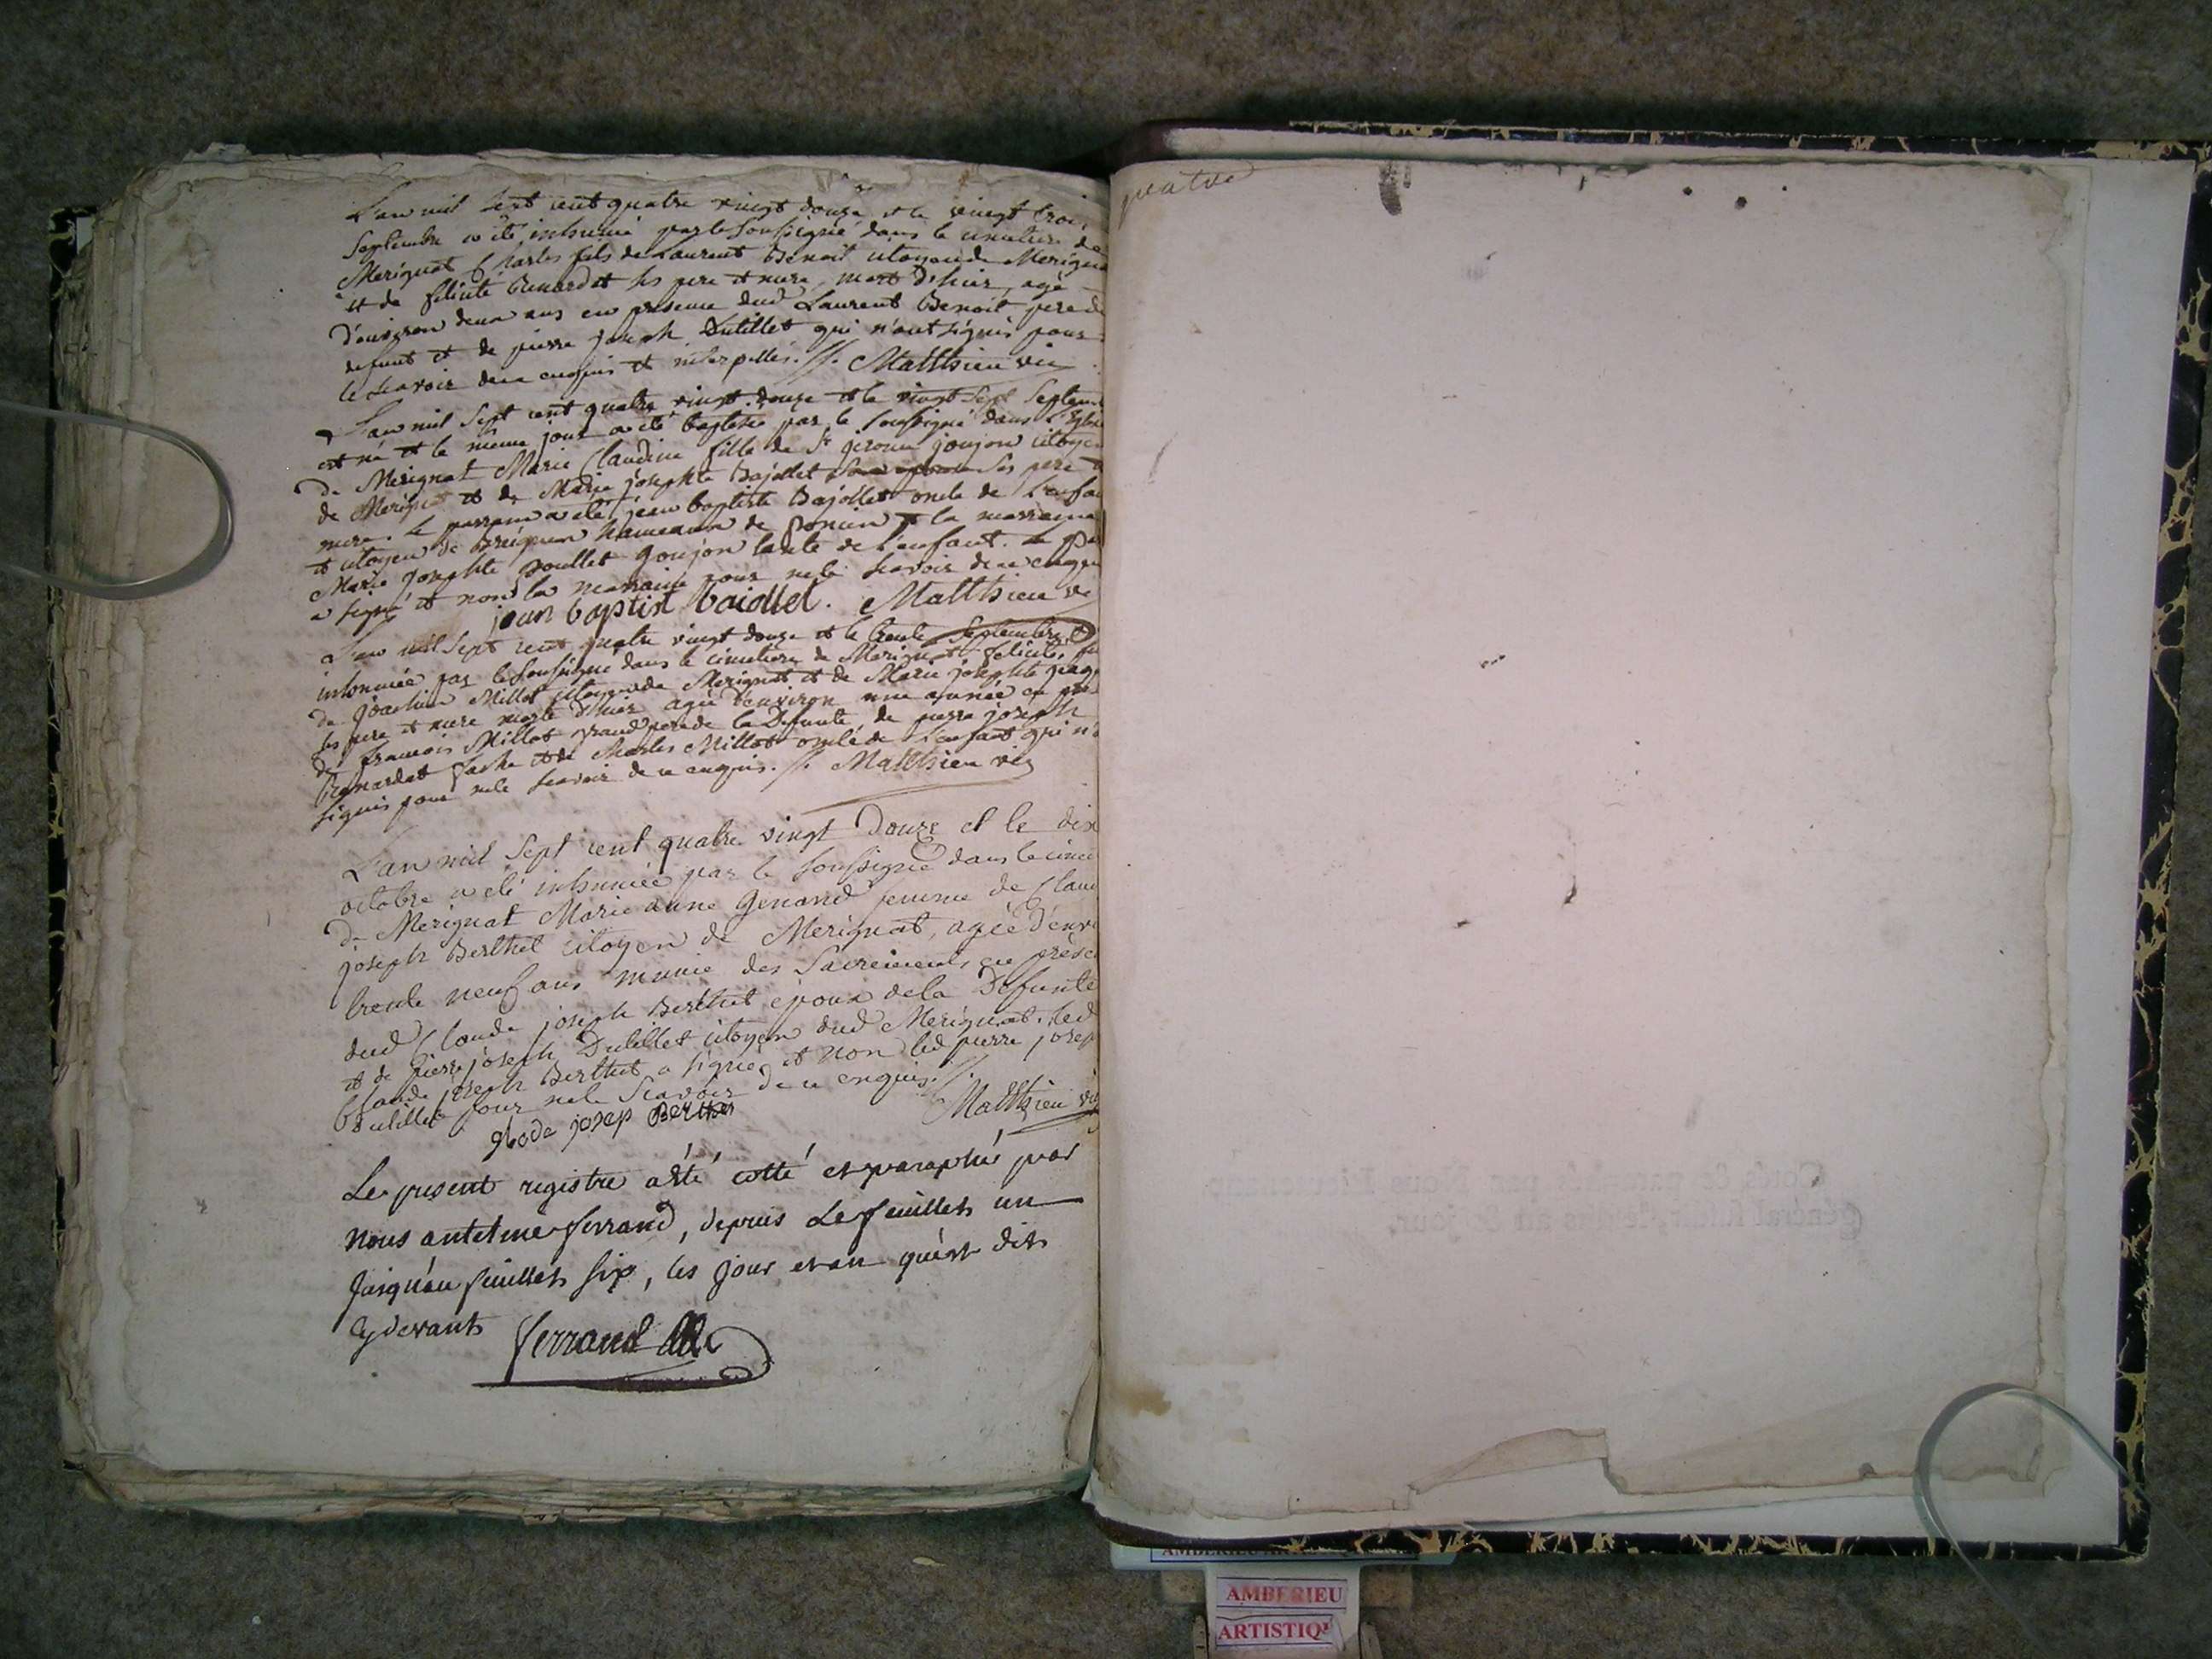 L'an mil sept cent quatre vingt douze et le vingt trois
Septembre a été inhumé par le soussigné dans le cimetiere de
Merignat Charles fils de Laurent Benoit citoyen de Merignat
et de felicité Benardet ses pere et mere, mort d'hier, agé
d'environ deux ans en presence dud Laurent Benoit pere du
defunt et de pierre joseph Dutillet qui n'ont signés pour
le scavoir de ce enquis et interpellés. //. Matthieu vic
L'an mil Sept cent quatre vingt douze et le vingt Sept Septem
est né et le même jour a été baptisée par le soussigné dans l'Eglise
de Merignat Marie Claudine fille de Sr jerome joujon citoyen
de Merignat et de Marie josephte Bajollet ses pere et
mere. le parrain a été jean baptiste Bajollet oncle de l'enfan
et citoyen de hameaux de Poncin et la marraine
Marie josephte Goujon tante de l'enfant. Le pa
a signé et non la marraine pour ne le scavoir de ce enquis
jean baptist baiollet. Matthieu vi
L'an mil Sept cent quatre vingt douze et le trente Septembre a
inhumée par le soussigné dans le cimetiere de Merignat felicité, fi
de joachim Millot citoyen de Merignat et de Marie josephte
ses pere et mere morte d'hier agée d'environ une année en pre
de francois Millot grand pere de la Defunte, de pierre joseph
Benardet et de Charles Millot oncle de l'enfant qui n'o
signés pour ne le scavoir de ce enquis. //. Matthieu vic
L'an mil Sept cent quatre vingt Douze et le dix
octobre a été inhumée par le soussigné dans le cime
de Merignat Marie anne Genand femme de Claud
joseph Berthet citoyen de Merignat, agée d'envi
trente neuf ans munie des Sacrements en prese
dud Claude joseph Berthet epoux de la Defunte
et de pierre joseph Dutillet citoyen dud Merignat. led
Claude joseph Berthet a signé et non led pierre josep
Dutillet pour ne le scavoir de ce enquis. //.
glode josep Berthet Matthieu vic
Le present registre a été cotté et paraphé par
nous antelme ferrand, depuis Le feuillet un
Jusqu'au feuillet six, les jour et an qu'est dit
cy devant
ferrand
quatre
Coté & paraphé par Nous
général
AMBERIEU
ARTISTIQ